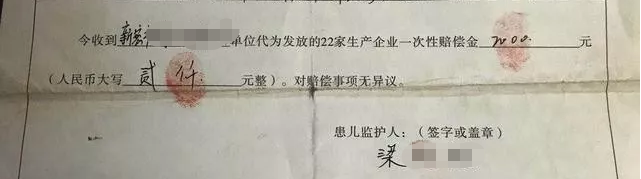 今收到新宏单位代为发放的22家生产企业一次性赔偿金2000.元
(人民币大写贰仟元整)。对赔偿事项无异议。
患儿监护人:(签字或盖章)
梁